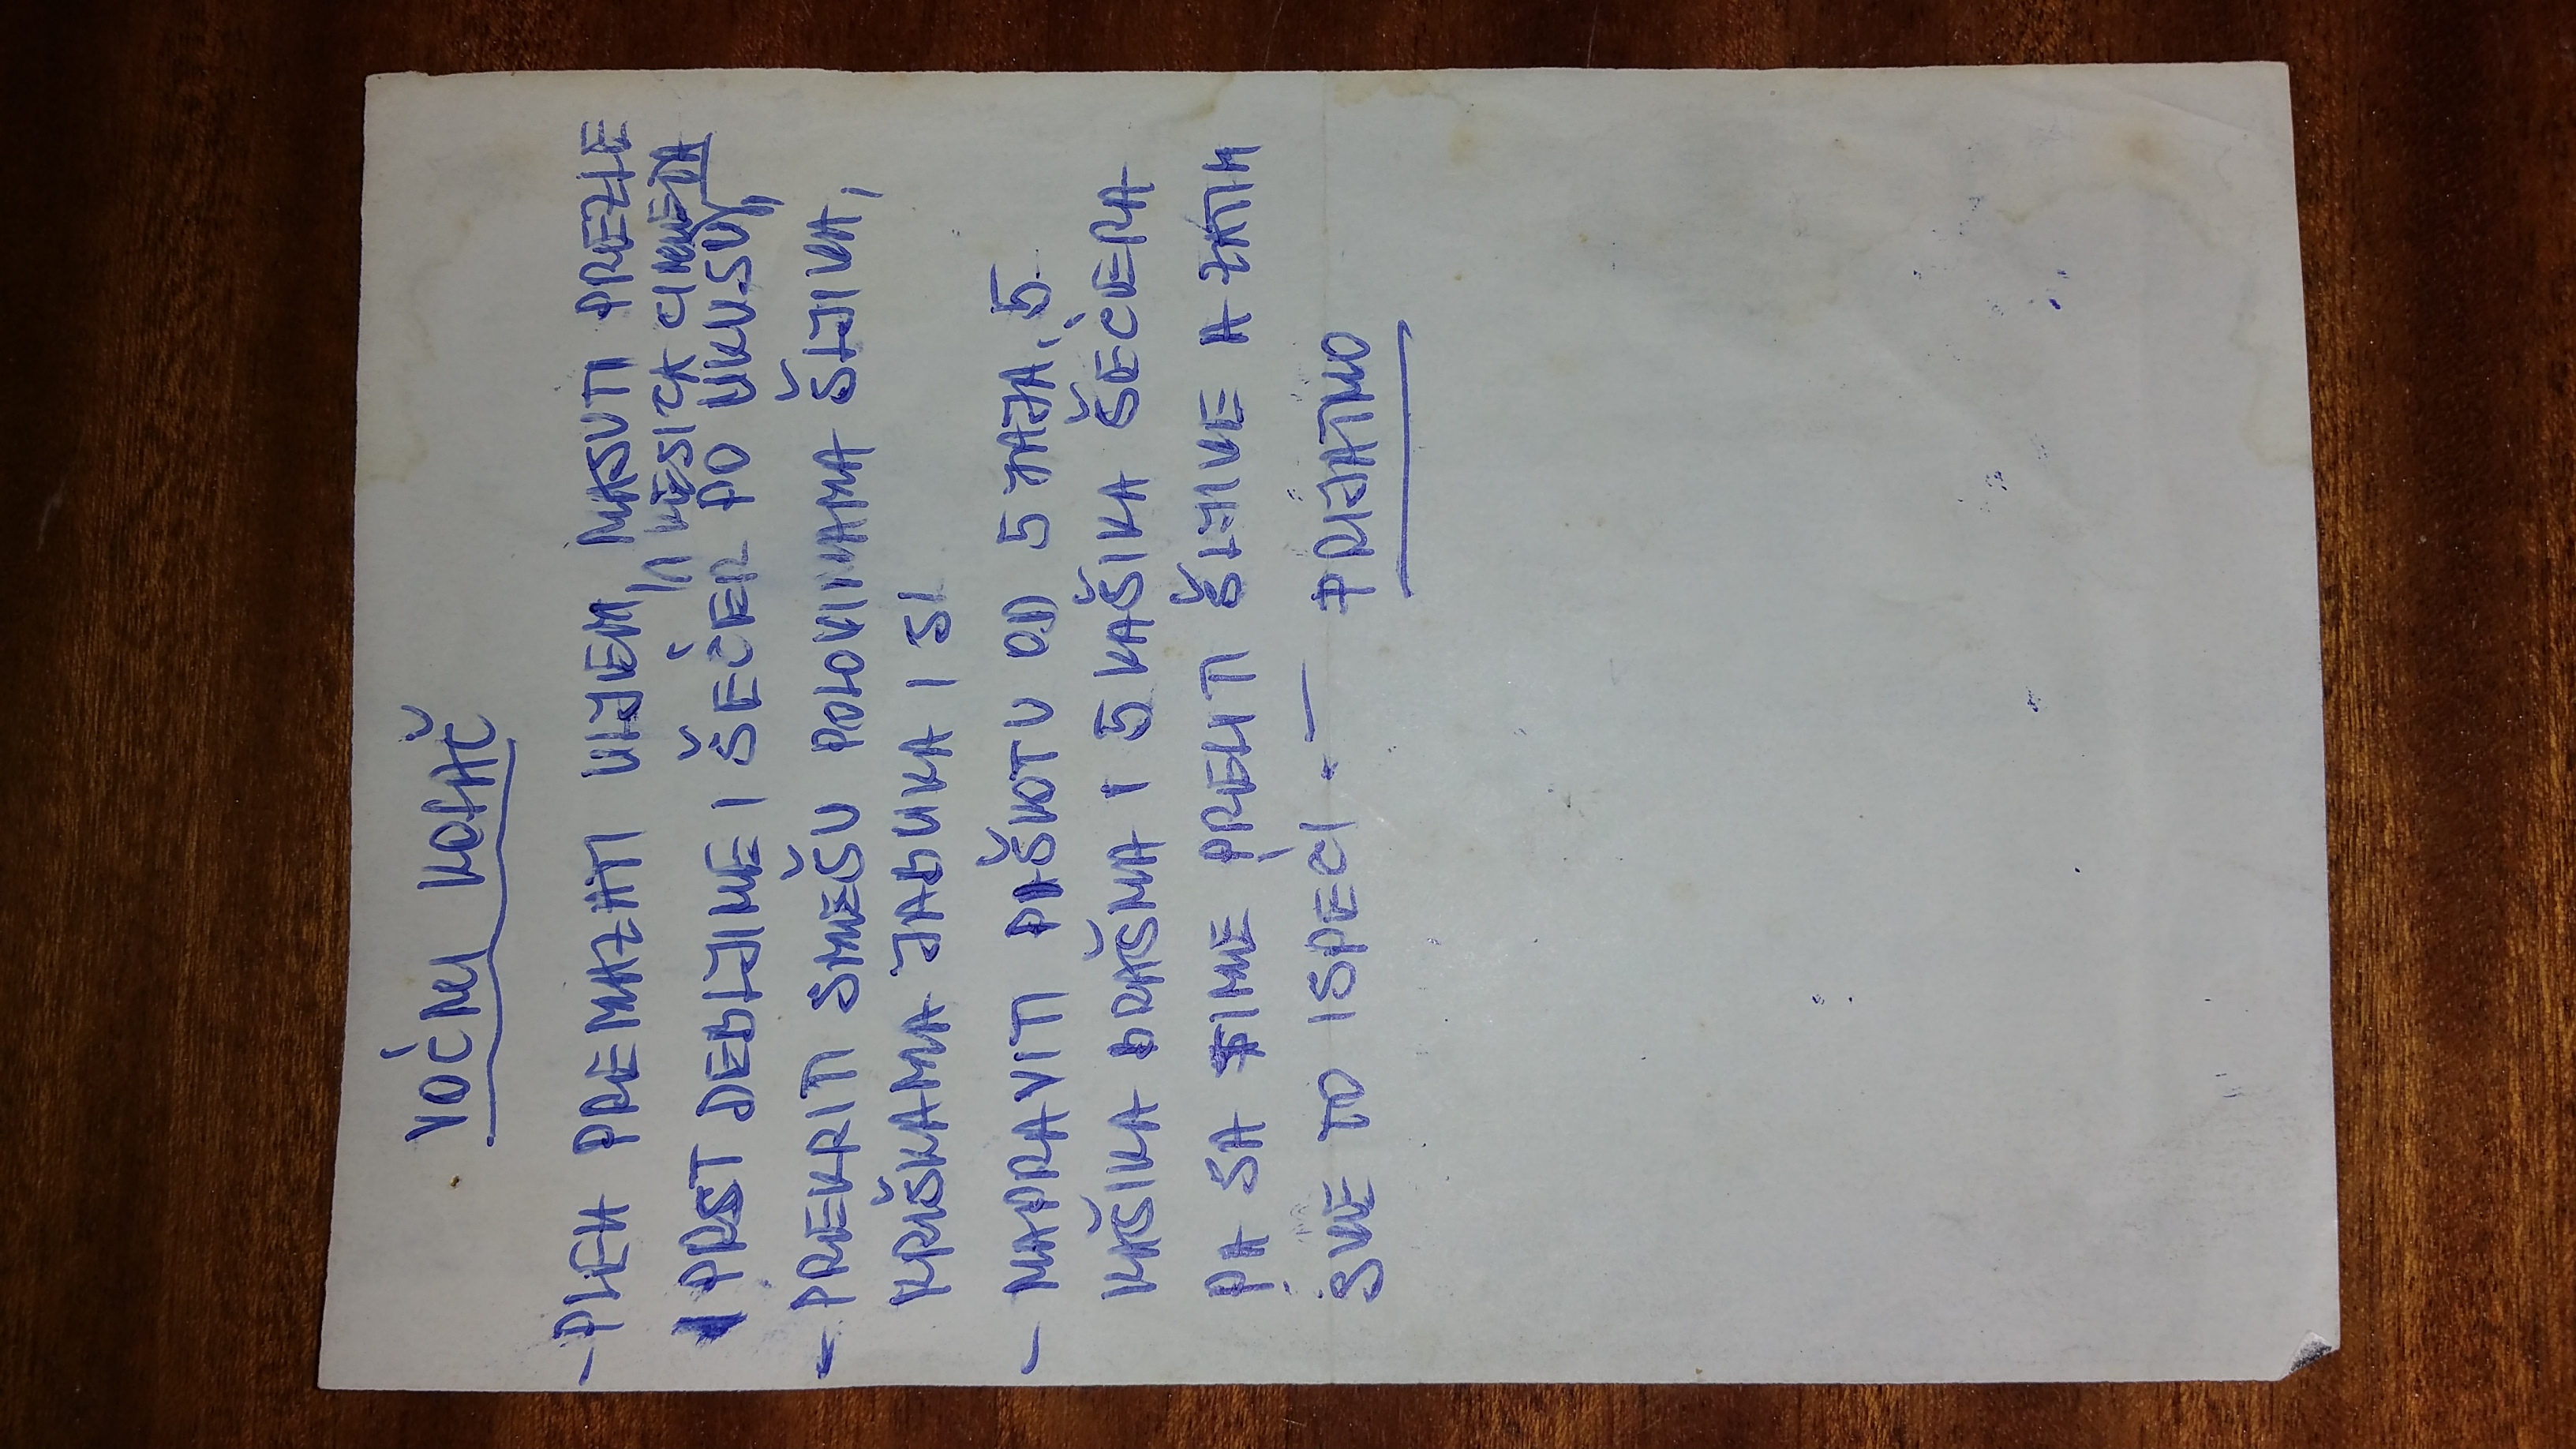 VOĆNI KOLAČ
- PLEH PREMAZATI ULJEM, NASUTI PREZLE
1 KESICA CIMETA
1 PRST DEBLJINE I ŠEĆER PO UKUSU,
- PREKRITI SMEŠU POLOVINAMA ŠLJIVA,
KRIŠKAMA JABUKA I SL
- NAPRAVITI PIŠKOTU OD 5 JAJA, 5
KAŠIKA BRAŠNA I 5 KAŠIKA ŠEĆERA
PA SA TIME PRELITI ŠLJIVE A ZATIM
SVE TO ISPEĆI. - PRIJATNO